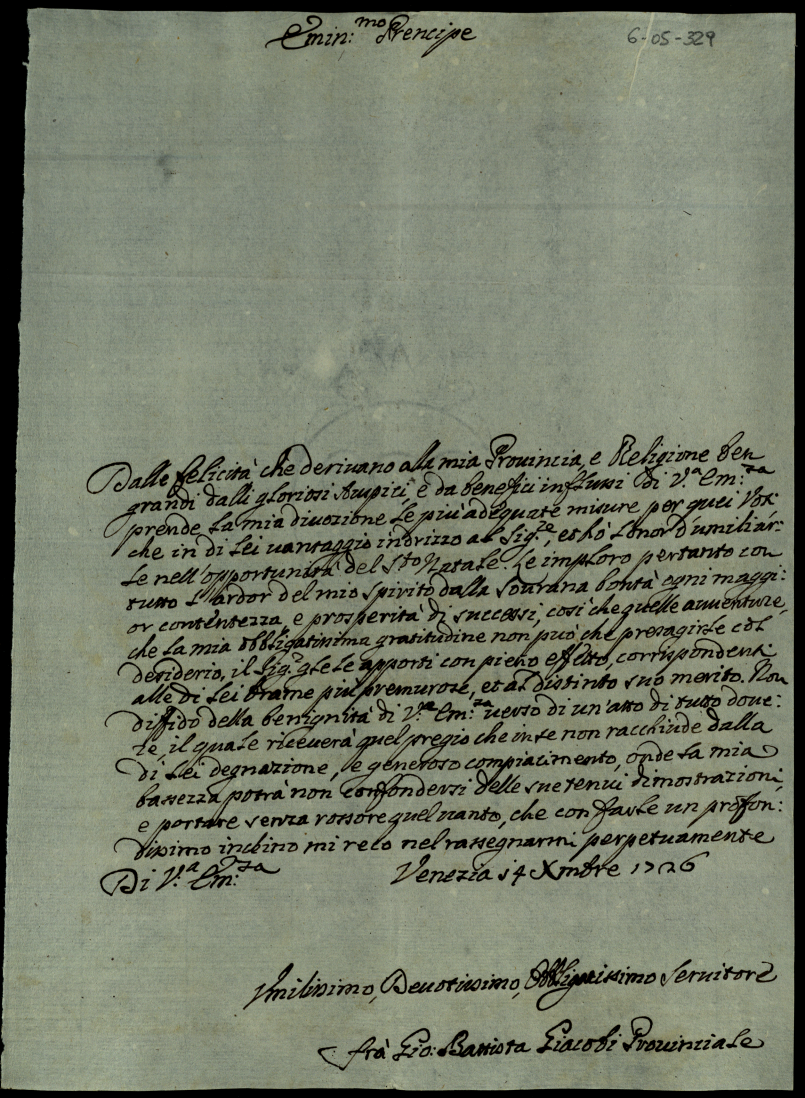 Emin:mo Prencipe
6-05-329
Dalle felicità che deriuano alla mia Prouincia, e Religione ben
grandi dalli gloriosi Auspici, e da benefici influssi di V.a Em:za
prende la mia diuozione le più adequate misure per quei Voti
che in di Lei uantaggio indrizzo al Sig.re, et hò l'onor d'umiliár:
le nell'opportunità del S.to Natale. Le imploro pertanto con
tutto l'ardor del mio spirito dalla Sourana bontà ogni maggi:
or contentezza, e prosperità di successi, così che quelle auuenture,
che la mia obbligatissima gratitudine non può che presagirle col
desiderio, il Sig.re gle le apporti con pieno effetto, corrispondenti
alle di Lei brame più premurose, et al distinto suo merito. Non
diffido della benignità di V.ra Em:za uerso di un'atto di tutto doue:
re, il quale riceuerà quel pregio che in se non racchiude dalla
di Lei degnazione, e generoso compiacimento, onde la mia
bassezza potrà non confondersi delle sue tenui dimostrazioni,
e portare senza rossore quel uanto, che con farle un profon:
dissimo inchino mi reco nel rassegnarmi perpetuamente
Di V.a Em:za Venezia 14 Xmbre 1726
Vmilissimo, Deuotissimo, Obbligatissimo Seruitore
frà Gio: Battista Giacobi Prouinciale